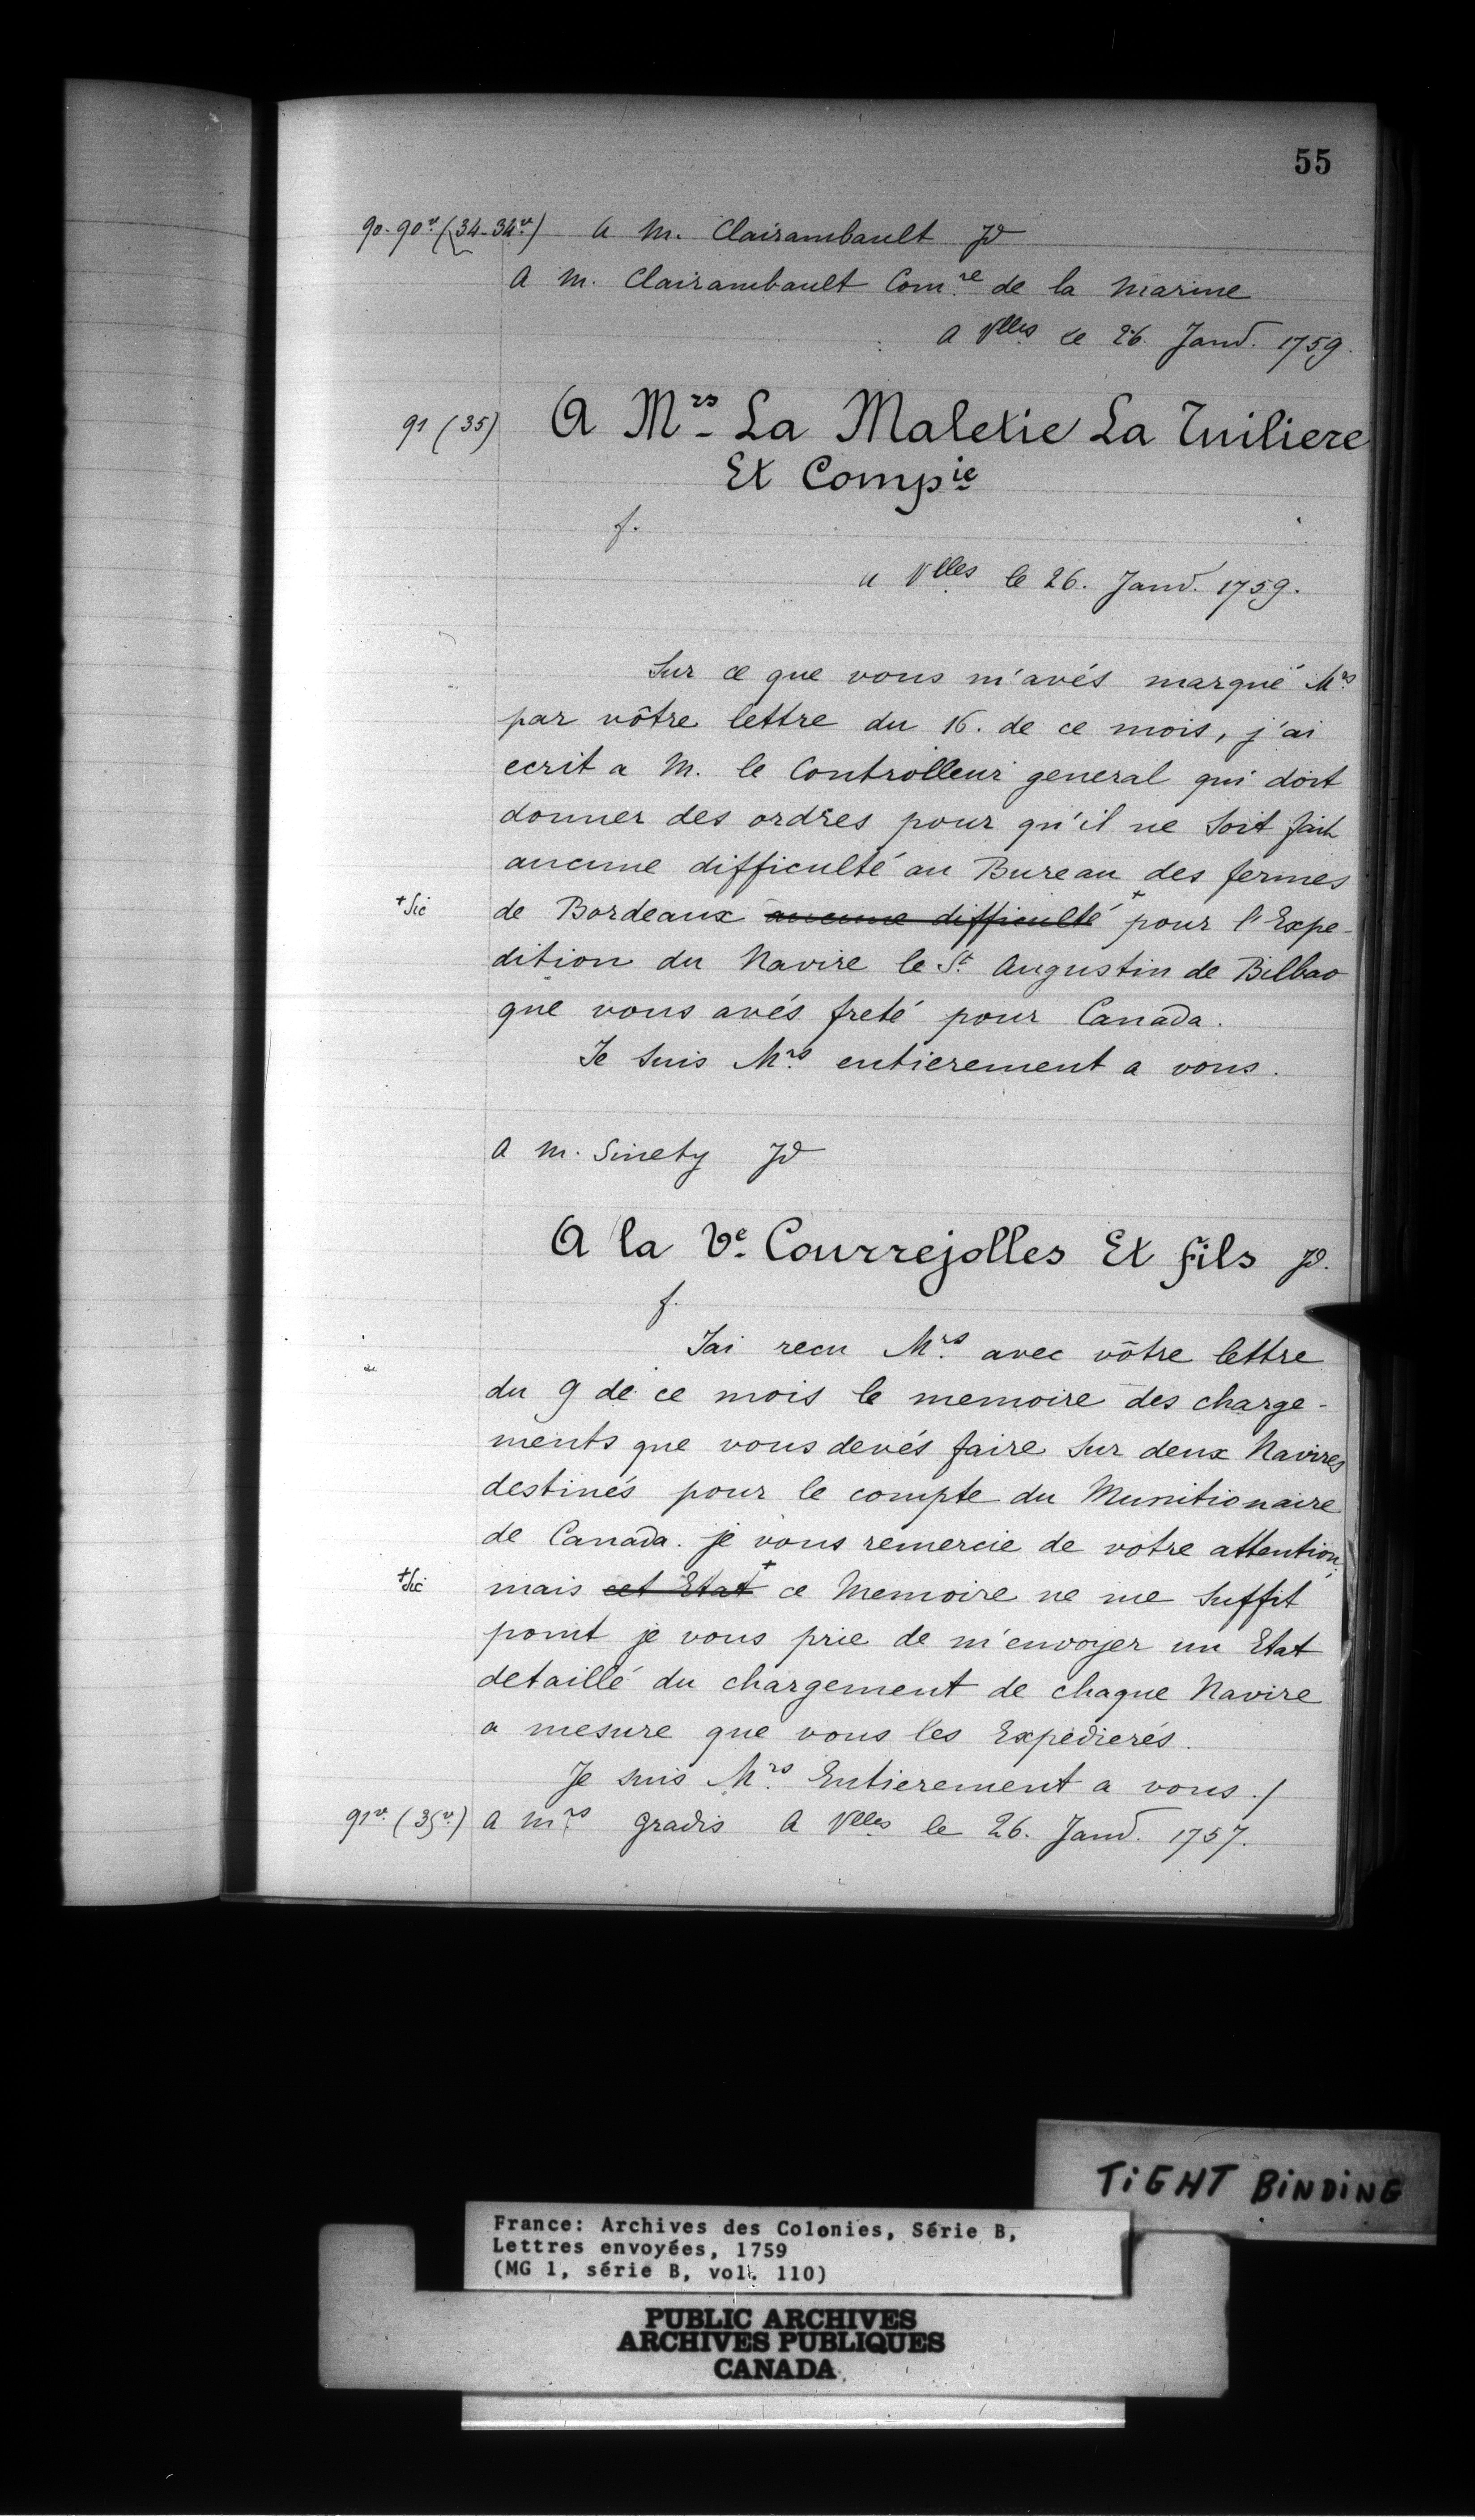 55
90-90v (34-34v) a M. Clairambault Jd
A M. Clairambault Com.re de la Marine
A Vlles le 26. Janv. 1759.
91 (35) A Mrs La Maletie La Tuiliere
Et Compie
f.
a Vlles le 26. Janv. 1759.
Sur ce que vous m'avés marqué Mrs
par vôtre lettre du 16. de ce mois, j'ai
ecrit a M. le Controlleur general qui doit
donner des ordres pour qu'il ne soit fait
aucune difficulté au Bureau des fermes
+ Sic de Bordeaux aucune difficulté + pour l'Expe-
dition du Navire le St. Augustin de Bilbao
que vous avés freté pour Canada.
Je suis Mrs entierement a vous.
A M. Sinety Jd
A la Ve. Courrejolles Et fils Jd.
f.
Jai recu Mrs avec vôtre lettre
du 9 de ce mois le memoire des charge-
ments que vous devés faire sur deux Navires
destinés pour le compte du Munitionaire
de Canada. je vous remercie de votre attention,
+ Sic mais cet Etat + ce Memoire ne me suffit
point je vous prie de m'envoyer un Etat
detaillé du chargement de chaque Navire
a mesure que vous les Expedierés.
Je suis Mrs Entierement a vous./
91v. (35v.) A Mrs Gradis A Vlles le 26. Janv. 1757.
TiGHT BiNDiNG
France: Archives des Colonies, Série B,
Lettres envoyées, 1759
(MG 1, série B, vol. 110)
PUBLIC ARCHIVES
ARCHIVES PUBLIQUES
CANADA